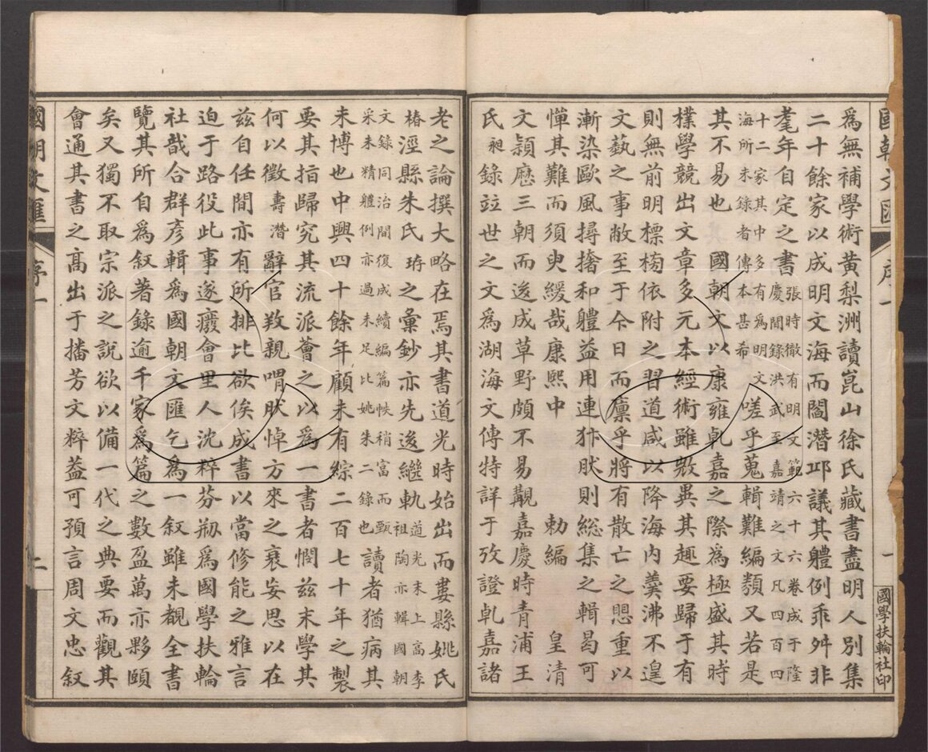 國朝文匯 序一 一 國學扶輪社印
爲無補學術黄梨洲讀崑山徐氏藏書盡明人別集
二十餘家以成明文海而閻潛邱議其軆例乖舛非
耄年自定之書張時徹有明文範六十六卷成于隆慶間錄洪武至嘉靖之文凡四百四
十二家其中多有爲明文海所未錄者傳本甚希嗟乎蒐輯難編纇又若是
其不易也 國朝文以康雍乹嘉之際爲極盛其時
樸學競出文章多元本經術雖斅異其趣要歸于有
則無前明標榜依附之習道咸以降海内羹沸不遑
文藝之事敝至于今日而廩乎將有散亡之思重以
漸染歐風撏撦和軆益用連犿肰則総集之輯曷可
憚其難而須臾緩哉康熙中 勅編 皇清
文穎歴三朝而後成草野頗不易觀嘉慶時青浦王
氏昶錄竝世之文爲湖海文傳特詳于攷證乹嘉諸
老之論撰大略在焉其書道光時始出而婁縣姚氏
椿涇縣朱氏珔之彙鈔亦先後繼軌道光末上高李祖陶亦輯國朝
文錄同治間復成續編篇帙稍富而甄采未精軆例亦過未足比姚朱二錄也讀者猶病其
未博也中興四十餘年顧未有綜二百七十年之製
要其指歸究其流派薈之以爲一書者憫兹末學其
何以徵壽潛辭官敎親喟肰悼方來之衰安思以在
兹自任閒亦有所排比欲俟成書以當修能之雅言
迫于路役此事遂癈會里人沈粹芬刱爲國學扶輪
社哉合群彦輯爲國朝文匯乞爲一叙雖未覩全書
覽其所自爲叙著錄逾千家爲篇之數盈萬亦夥頤
矣又獨不取宗派之說欲以備一代之典要而觀其
會通其書之高出于播芳文粹葢可預言周文忠叙
國朝文匯 序一 二